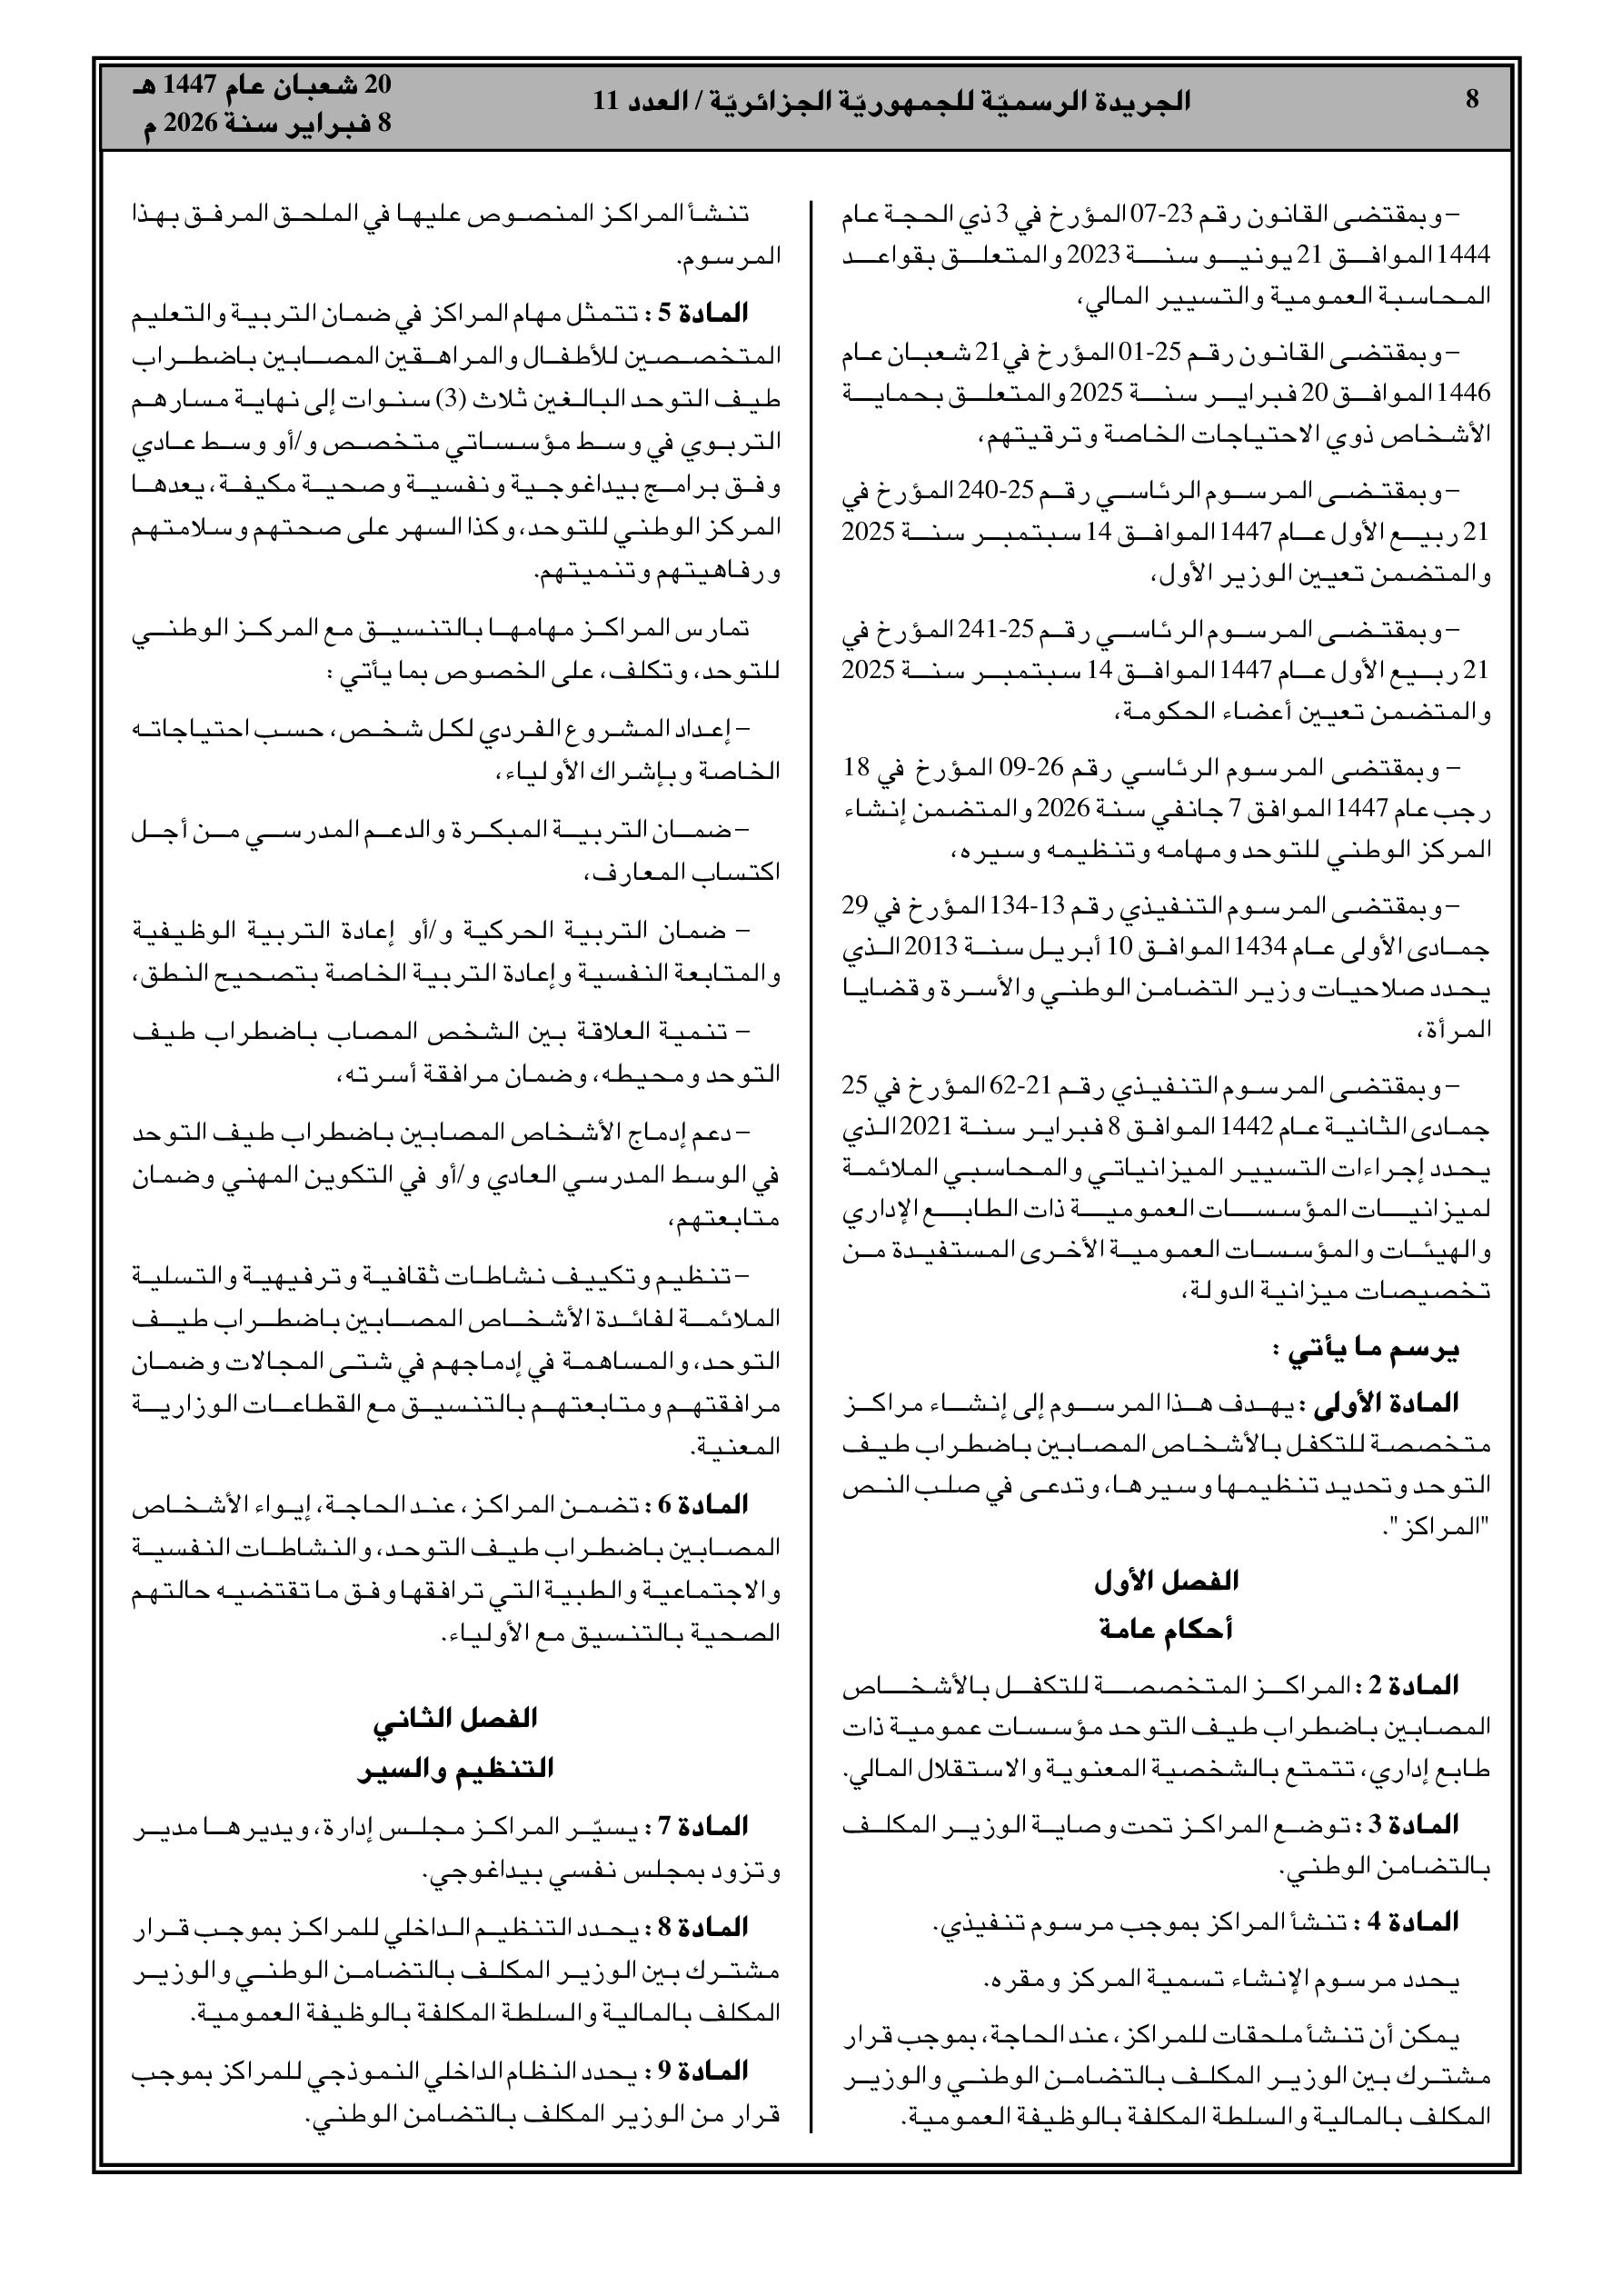 8
الجريدة الرسميّة للجمهوريّة الجزائريّة / العدد 11
20 شعبان عام 1447 هـ
8 فبراير سنة 2026 م
– وبمقتضى القانون رقم 23-07 المؤرخ في 3 ذي الحجة عام
1444 الموافق 21 يونيو سنة 2023 والمتعلق بقواعد
المحاسبة العمومية والتسيير المالي،
– وبمقتضى القانون رقم 25-01 المؤرخ في 21 شعبان عام
1446 الموافق 20 فبراير سنة 2025 والمتعلق بحماية
الأشخاص ذوي الاحتياجات الخاصة وترقيتهم،
– وبمقتضى المرسوم الرئاسي رقم 25-240 المؤرخ في
21 ربيع الأول عام 1447 الموافق 14 سبتمبر سنة 2025
والمتضمن تعيين الوزير الأول،
– وبمقتضى المرسوم الرئاسي رقم 25-241 المؤرخ في
21 ربيع الأول عام 1447 الموافق 14 سبتمبر سنة 2025
والمتضمن تعيين أعضاء الحكومة،
– وبمقتضى المرسوم الرئاسي رقم 26-09 المؤرخ في 18
رجب عام 1447 الموافق 7 جانفي سنة 2026 والمتضمن إنشاء
المركز الوطني للتوحد ومهامه وتنظيمه وسيره،
– وبمقتضى المرسوم التنفيذي رقم 13-134 المؤرخ في 29
جمادى الأولى عام 1434 الموافق 10 أبريل سنة 2013 الذي
يحدد صلاحيات وزير التضامن الوطني والأسرة وقضايا
المرأة،
– وبمقتضى المرسوم التنفيذي رقم 21-62 المؤرخ في 25
جمادى الثانية عام 1442 الموافق 8 فبراير سنة 2021 الذي
يحدد إجراءات التسيير الميزانياتي والمحاسبي الملائمة
لميزانيات المؤسسات العمومية ذات الطابع الإداري
والهيئات والمؤسسات العمومية الأخرى المستفيدة من
تخصيصات ميزانية الدولة،
يرسم ما يأتي :
المادة الأولى : يهدف هذا المرسوم إلى إنشاء مراكز
متخصصة للتكفل بالأشخاص المصابين باضطراب طيف
التوحد وتحديد تنظيمها وسيرها، وتدعى في صلب النص
"المراكز".
الفصل الأول
أحكام عامة
المادة 2 : المراكز المتخصصة للتكفل بالأشخاص
المصابين باضطراب طيف التوحد مؤسسات عمومية ذات
طابع إداري، تتمتع بالشخصية المعنوية والاستقلال المالي.
المادة 3 : توضع المراكز تحت وصاية الوزير المكلف
بالتضامن الوطني.
المادة 4 : تنشأ المراكز بموجب مرسوم تنفيذي.
يحدد مرسوم الإنشاء تسمية المركز ومقره.
يمكن أن تنشأ ملحقات للمراكز، عند الحاجة، بموجب قرار
مشترك بين الوزير المكلف بالتضامن الوطني والوزير
المكلف بالمالية والسلطة المكلفة بالوظيفة العمومية.
تنشأ المراكز المنصوص عليها في الملحق المرفق بهذا
المرسوم.
المادة 5 : تتمثل مهام المراكز في ضمان التربية والتعليم
المتخصصين للأطفال والمراهقين المصابين باضطراب
طيف التوحد البالغين ثلاث (3) سنوات إلى نهاية مسارهم
التربوي في وسط مؤسساتي متخصص و/أو وسط عادي
وفق برامج بيداغوجية ونفسية وصحية مكيفة، يعدها
المركز الوطني للتوحد، وكذا السهر على صحتهم وسلامتهم
ورفاهيتهم وتنميتهم.
تمارس المراكز مهامها بالتنسيق مع المركز الوطني
للتوحد، وتكلف، على الخصوص بما يأتي :
– إعداد المشروع الفردي لكل شخص، حسب احتياجاته
الخاصة وبإشراك الأولياء،
– ضمان التربية المبكرة والدعم المدرسي من أجل
اكتساب المعارف،
– ضمان التربية الحركية و/أو إعادة التربية الوظيفية
والمتابعة النفسية وإعادة التربية الخاصة بتصحيح النطق،
– تنمية العلاقة بين الشخص المصاب باضطراب طيف
التوحد ومحيطه، وضمان مرافقة أسرته،
– دعم إدماج الأشخاص المصابين باضطراب طيف التوحد
في الوسط المدرسي العادي و/أو في التكوين المهني وضمان
متابعتهم،
– تنظيم وتكييف نشاطات ثقافية وترفيهية والتسلية
الملائمة لفائدة الأشخاص المصابين باضطراب طيف
التوحد، والمساهمة في إدماجهم في شتى المجالات وضمان
مرافقتهم ومتابعتهم بالتنسيق مع القطاعات الوزارية
المعنية.
المادة 6 : تضمن المراكز، عند الحاجة، إيواء الأشخاص
المصابين باضطراب طيف التوحد، والنشاطات النفسية
والاجتماعية والطبية التي ترافقها وفق ما تقتضيه حالتهم
الصحية بالتنسيق مع الأولياء.
الفصل الثاني
التنظيم والسير
المادة 7 : يسيّر المراكز مجلس إدارة، ويديرها مدير
وتزود بمجلس نفسي بيداغوجي.
المادة 8 : يحدد التنظيم الداخلي للمراكز بموجب قرار
مشترك بين الوزير المكلف بالتضامن الوطني والوزير
المكلف بالمالية والسلطة المكلفة بالوظيفة العمومية.
المادة 9 : يحدد النظام الداخلي النموذجي للمراكز بموجب
قرار من الوزير المكلف بالتضامن الوطني.